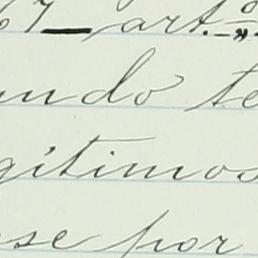 67 — art.º „
undo te
gítimos
sse por